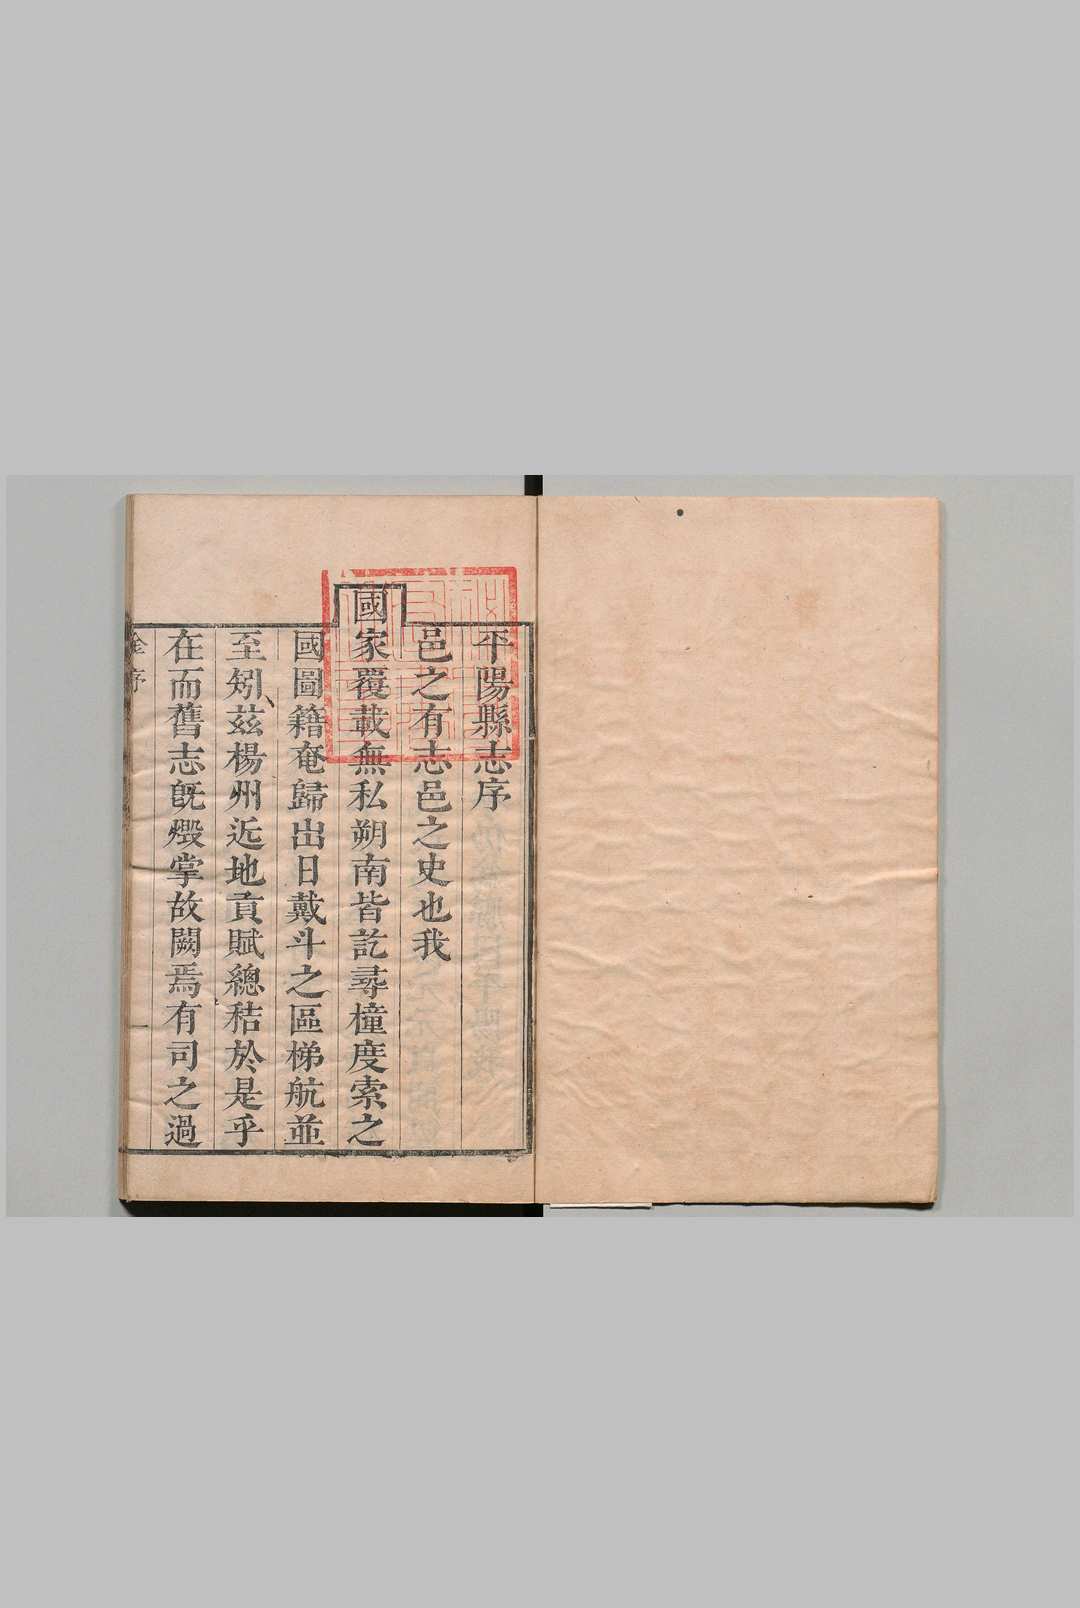 平陽縣志序
邑之有志邑之史也我
國家覆載無私朔南皆訖尋橦度索之
國圖籍奄歸出日戴斗之區梯航並
至矧茲楊州近地貢賦總秸於是乎
在而舊志旣燬掌故闕焉有司之過
金序
一